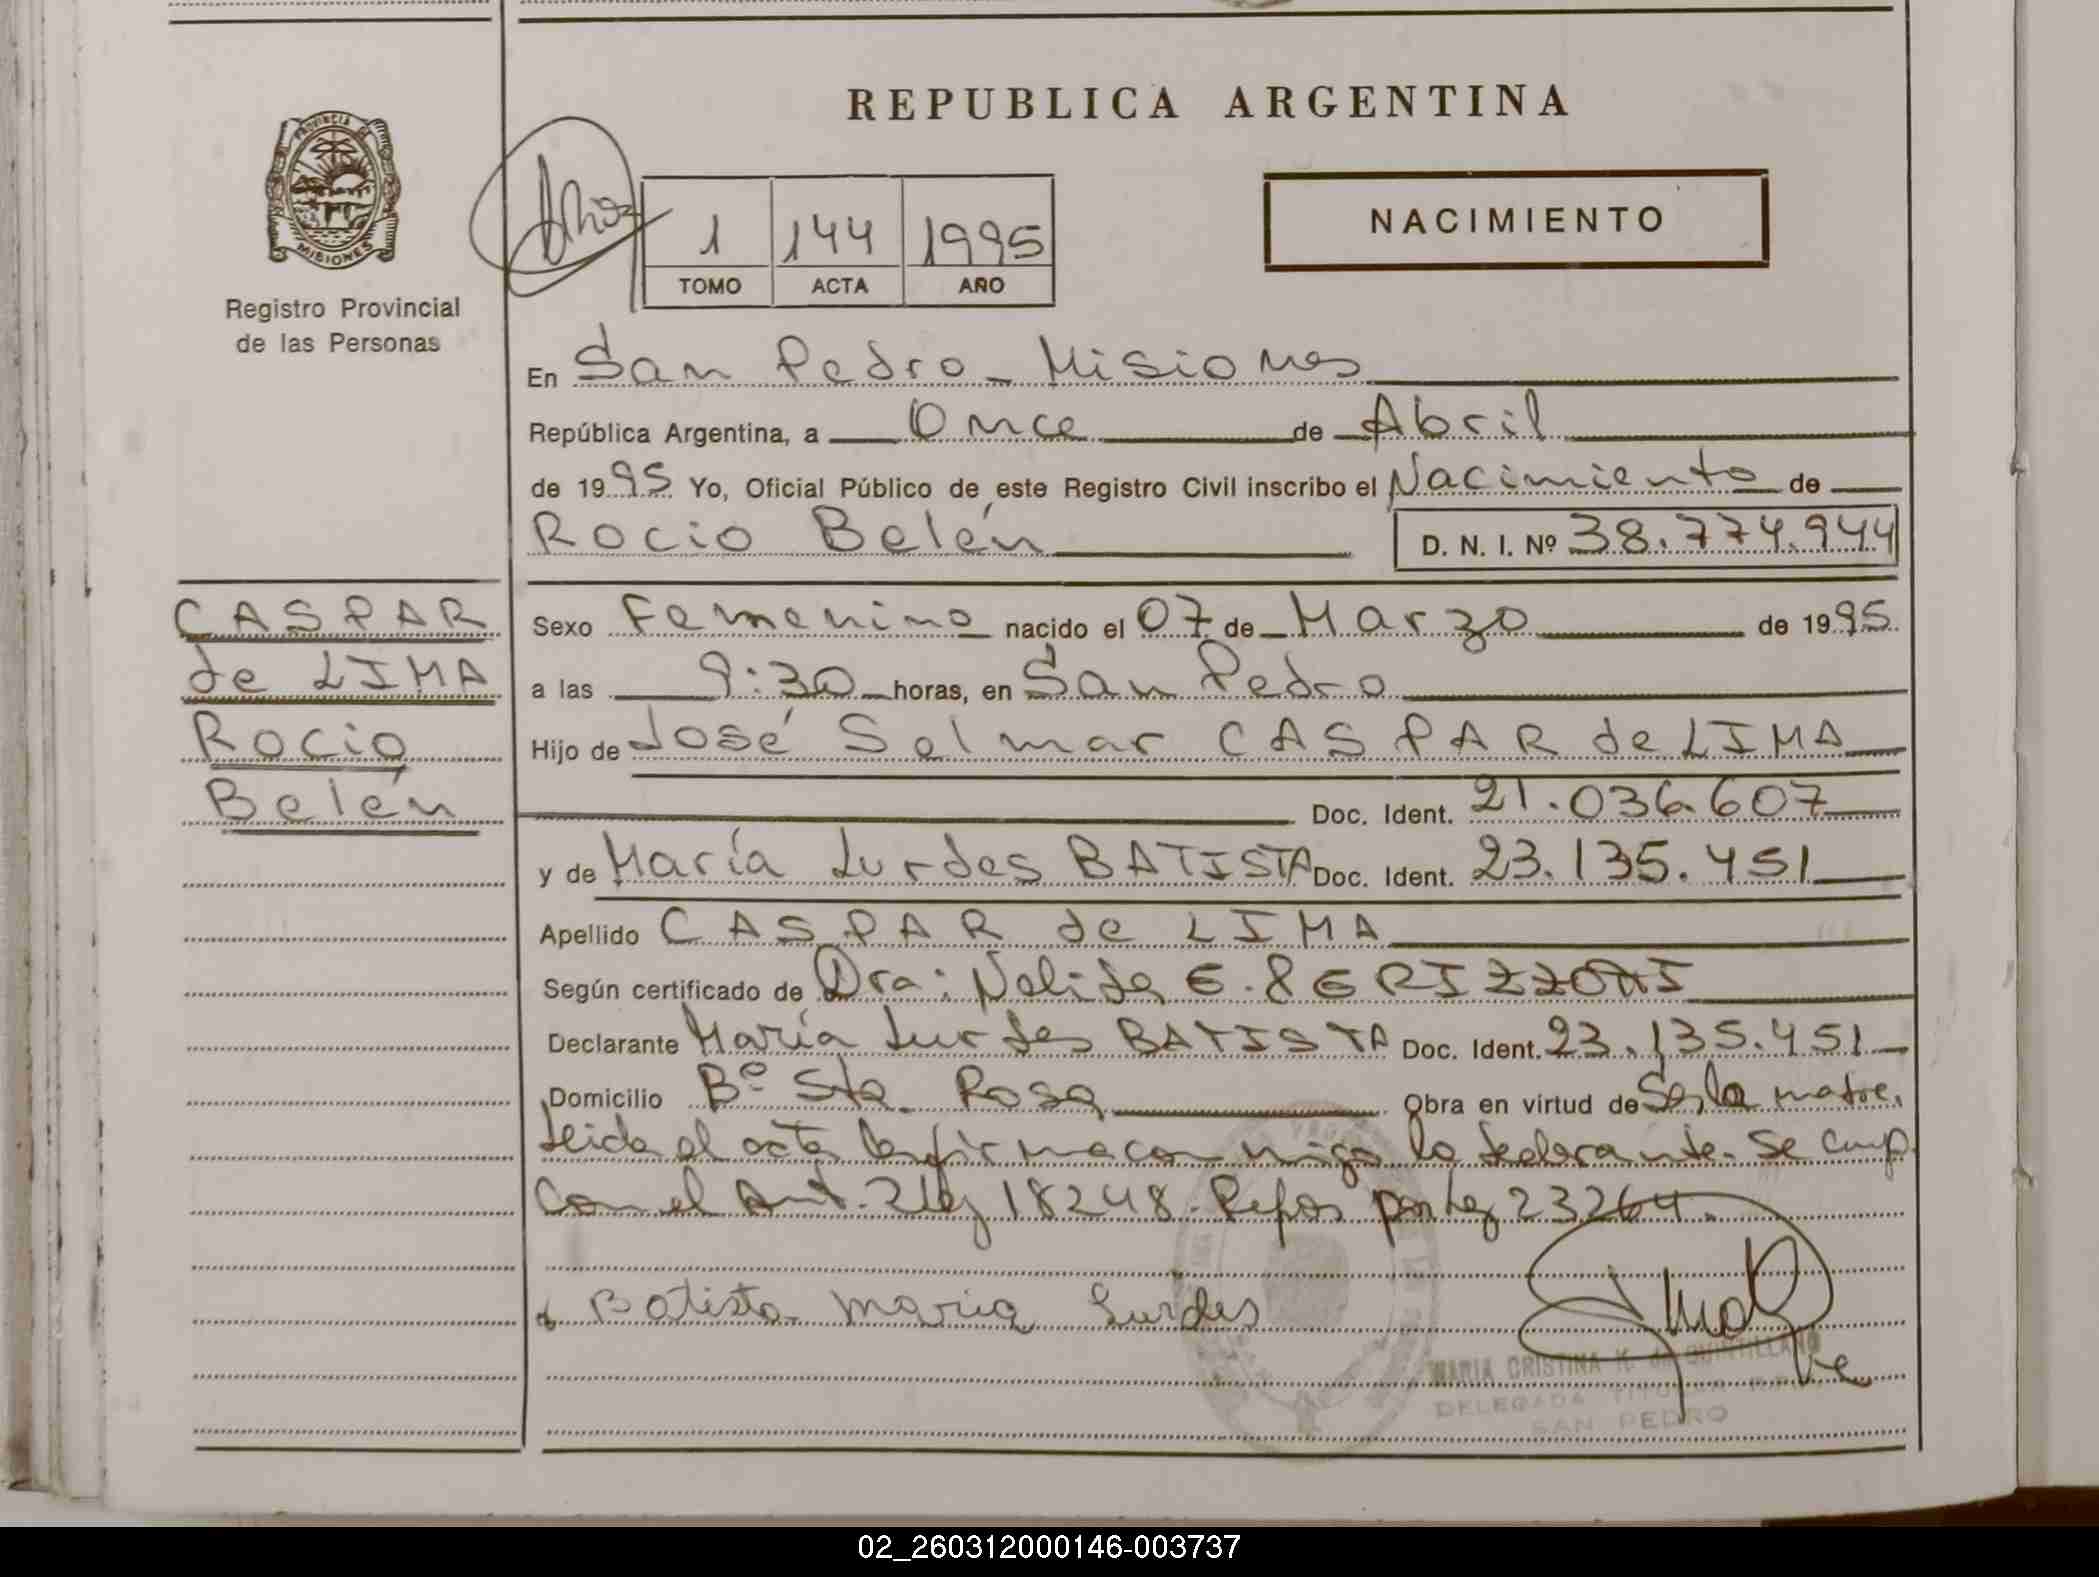 REPUBLICA ARGENTINA
PROVINCIA DE
MISIONES
Registro Provincial
de las Personas
1 144 1995
TOMO ACTA AÑO
NACIMIENTO
En San Pedro - Misiones
República Argentina, a Once de Abril
de 1995 Yo, Oficial Público de este Registro Civil inscribo el Nacimiento de
Rocio Belén D. N. I. Nº 38.774.944
CASPAR
de LIMA
Rocio
Belén
Sexo Femenino nacido el 07 de Marzo de 1995
a las 9:30 horas, en San Pedro
Hijo de José Selmar CASPAR de LIMA
Doc. Ident. 21.036.607
y de María Lurdes BATISTA Doc. Ident. 23.135.451
Apellido CASPAR de LIMA
Según certificado de Dra: Nelida E.
Declarante María Lurdes BATISTA Doc. Ident. 23.135.451
Domicilio Bº Sta. Rosa Obra en virtud de Ser la madre.
Leida el acta la firma con migo la declarante. Se cump.
Con el Art. 2 Ley 18248. por Ley 23264.
Batista Maria Lurdes
MARIA CRISTINA K. de QUINTILLANO
DELEGADA TITULAR
SAN PEDRO
02_260312000146-003737